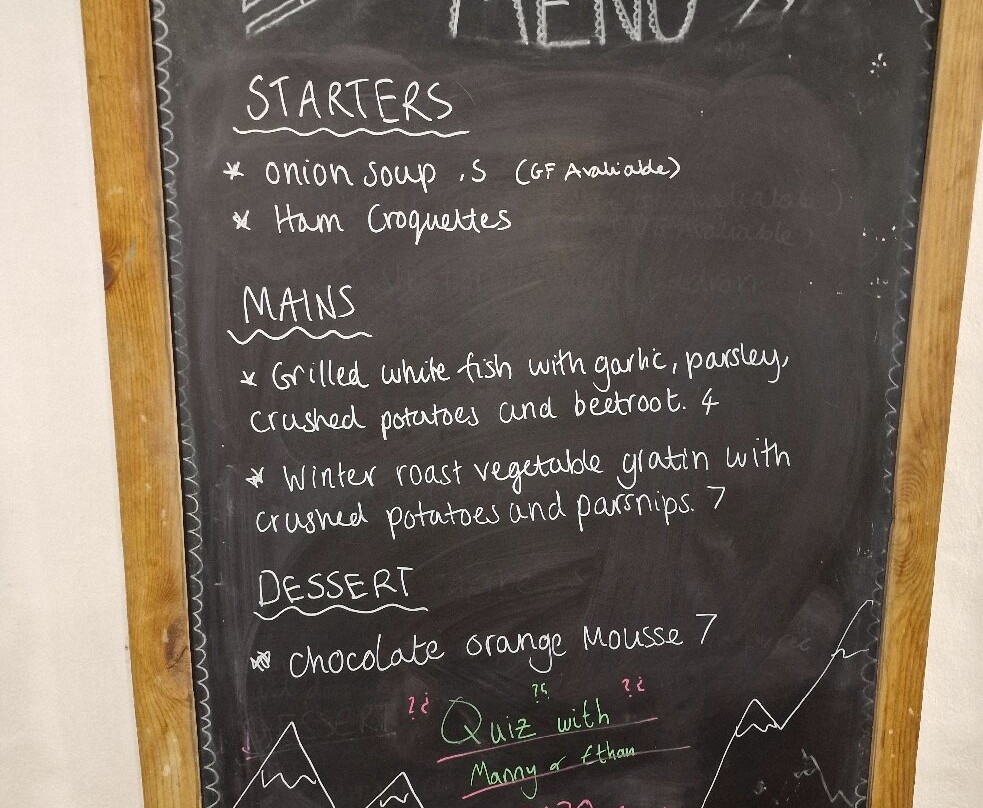 MENU
STARTERS
* onion soup .S (GF Avaliable)
* Ham Croquettes
MAINS
* Grilled white fish with garlic, parsley,
crushed potatoes and beetroot. 4
* Winter roast vegetable gratin with
crushed potatoes and parsnips. 7
DESSERT
* chocolate orange Mousse 7
?¿ ?¿ ?¿
Quiz with
Manny or Ethan